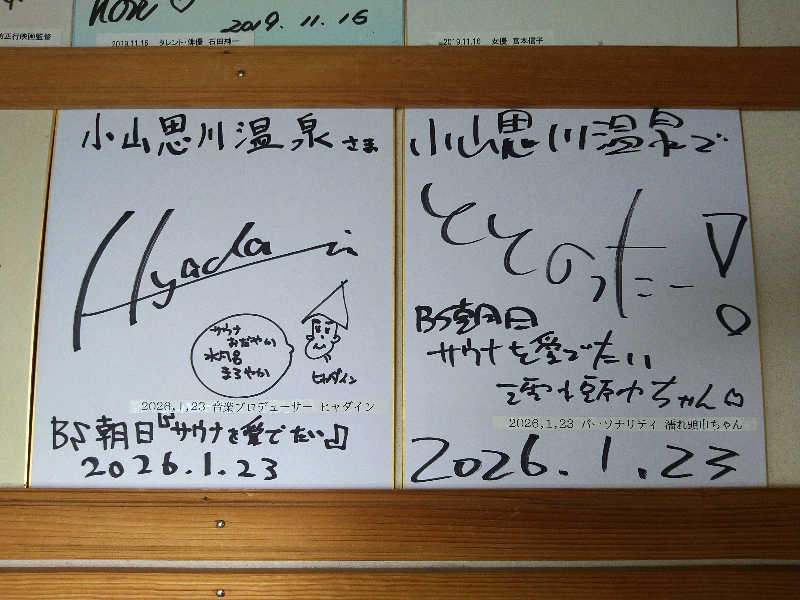 2019.11.16
2019.11.16 タレント・俳優 石田純一
2019.11.16 女優 宮本信子
小山思川温泉さま
Hyada in
サウナ
おだやか
水風呂
まろやか
ヒャダイン
2026.1.23 音楽プロデューサー ヒャダイン
BS朝日「サウナを愛でたい」
2026.1.23
小山思川温泉で
ととのったー!
BS朝日
サウナを愛でたい
濡れ頭巾ちゃん
2026.1.23 パーソナリティ 濡れ頭巾ちゃん
2026.1.23